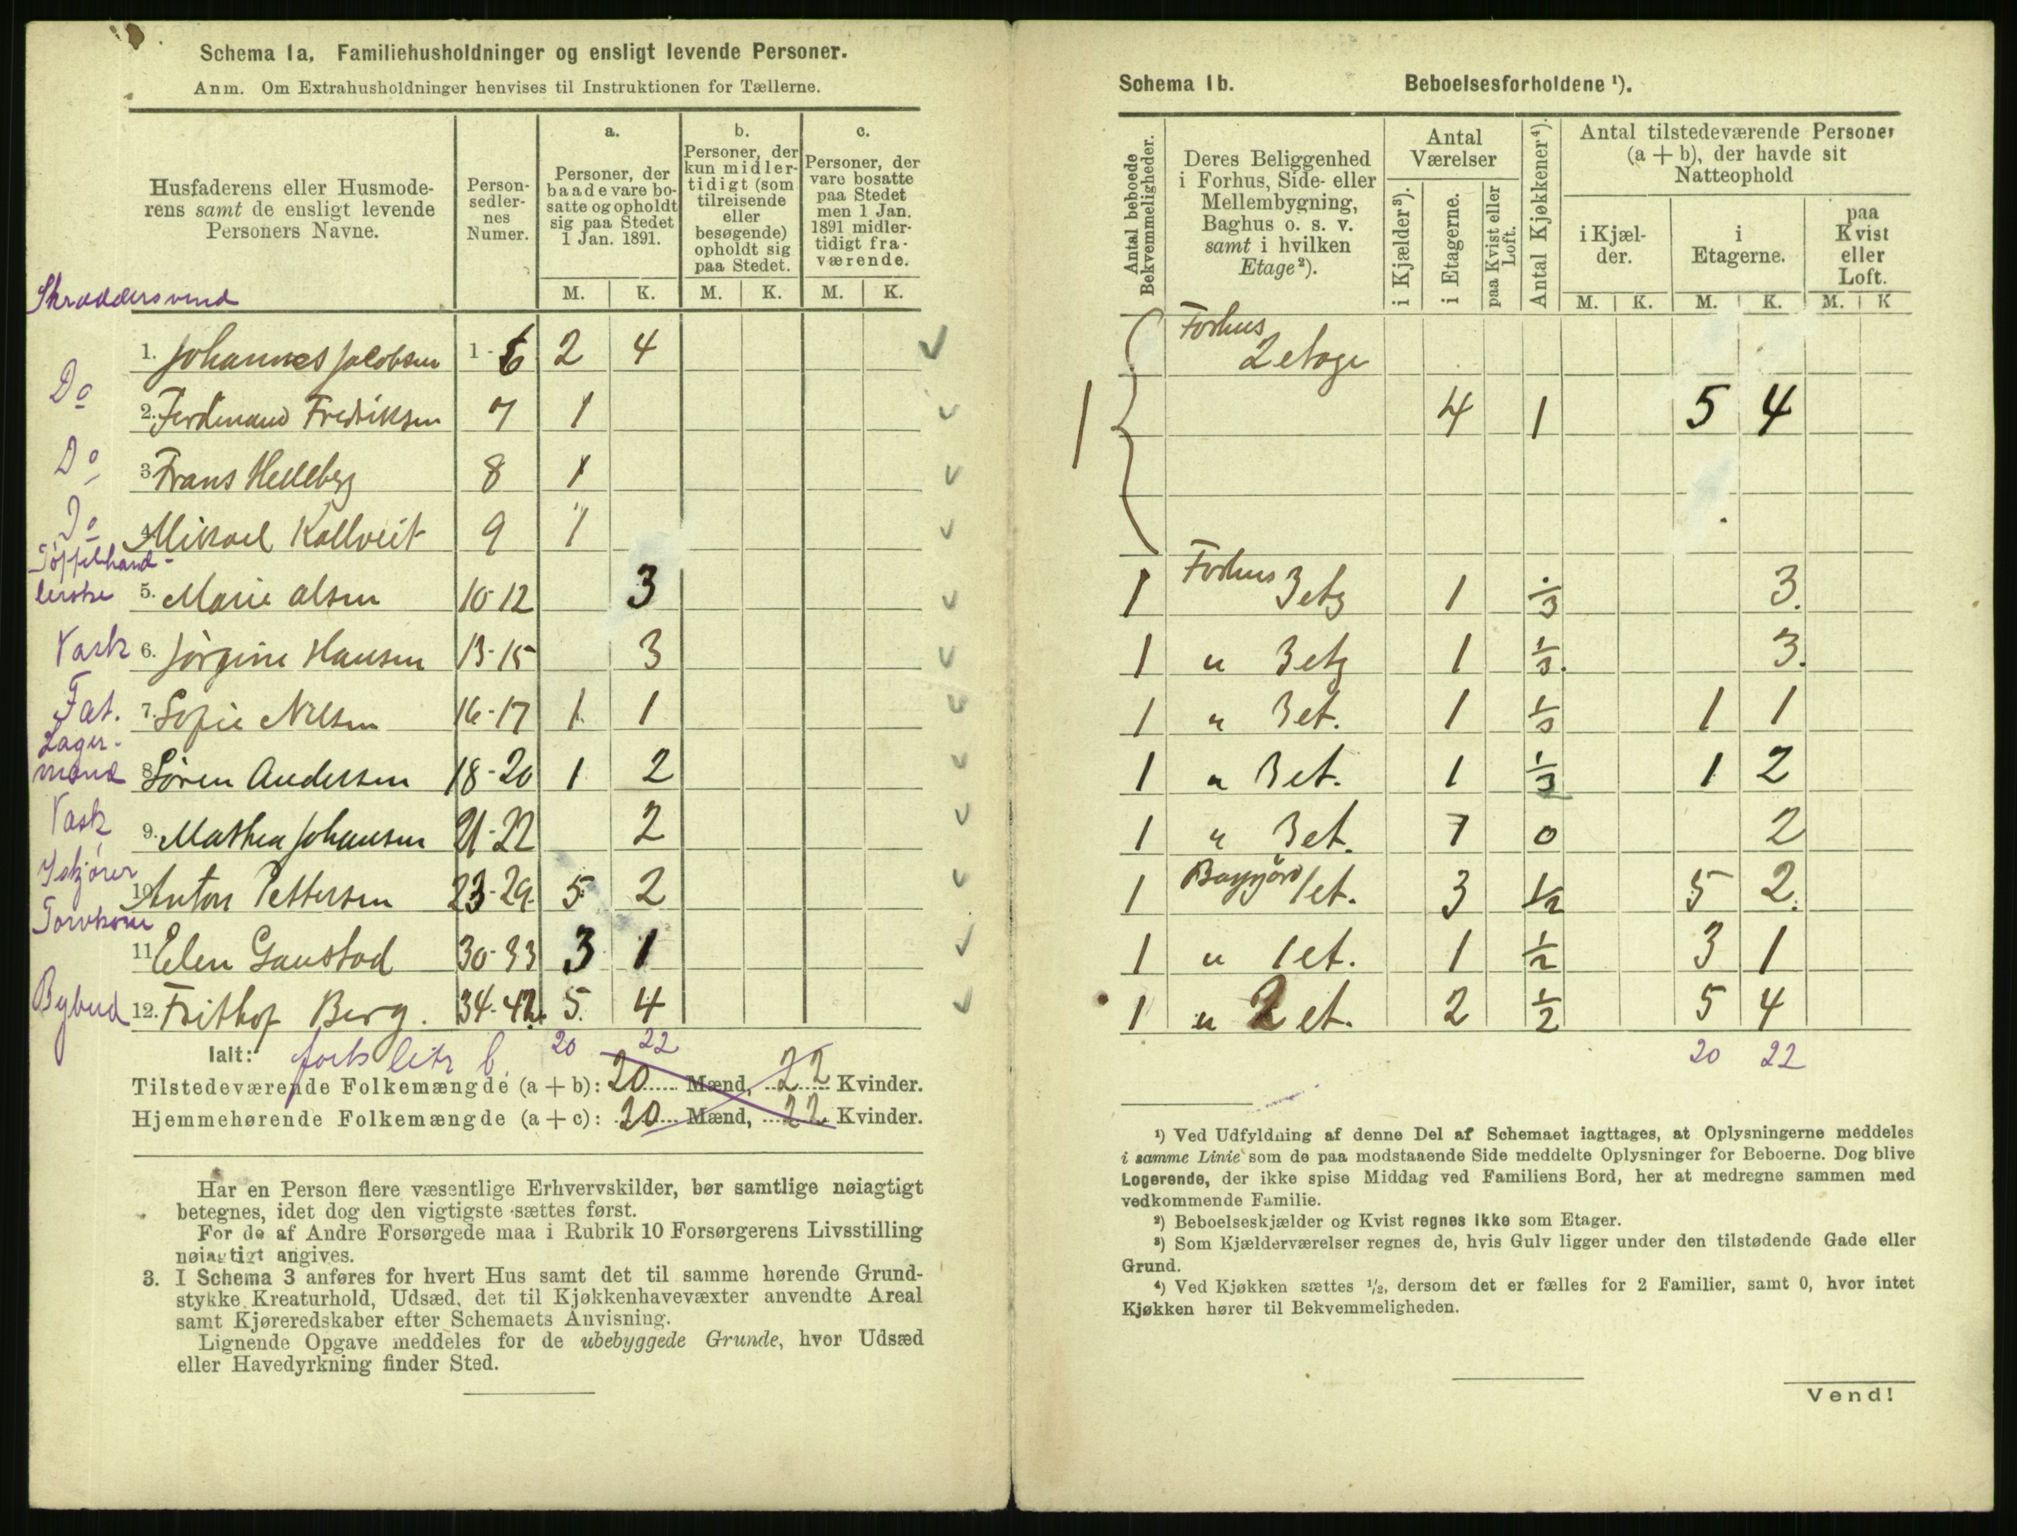 Schema 1a, Familiehusholdninger og ensligt levende Personer.
Anm. Om Extrahusholdninger henvises til Instruktionen for Tællerne.
Husfaderens eller Husmode-
rens samt de ensligt levende
Personers Navne.
Person-
sedler-
nes
Numer.
a.
Personer, der
baade vare bo-
satte og opholdt
sig paa Stedet
1 Jan. 1891.
b.
Personer, der
kun midler-
tidigt (som
tilreisende
eller
besøgende)
opholdt sig
paa Stedet.
c.
Personer, der
vare bosatte
paa Stedet
men 1 Jan.
1891 midler-
tidigt fra-
værende.
M. K. M. K. M. K.
Skræddersvend
1. Johannes Jacobsen 1-6 2 4
Do
2. Ferdinand Fredriksen 7 1
Do
3 Frans Hedeberg 8 1
Do
4. Mikael Kallveit 9 1
Tøffelhand-
lerske 5. Marie Olsen 10-12 3
Vask 6. Jørgine Hansen 13-15 3
Fat. 7. Sofie Nilsen 16-17 1 1
Lager-
mand 8 Søren Andersen 18-20 1 2
Vask 9. Mathea Johansen 21-22 2
Iskjører
10 Anton Pettersen 23-29. 5 2
Torvkone
11 Elen Gaustad 30-33 3 1
Bybud 12. Frithof Berg. 34-42. 5 4
Ialt: forts litr b. 20 22
Tilstedeværende Folkemængde (a + b): 20 Mænd, 22 Kvinder.
Hjemmehørende Folkemængde (a + c): 20 Mænd, 22 Kvinder.
Har en Person flere væsentlige Erhvervskilder, bør samtlige nøiagtigt
betegnes, idet dog den vigtigste sættes først.
For de af Andre Forsørgede maa i Rubrik 10 Forsørgerens Livsstilling
nøiagtigt angives.
3. I Schema 3 anføres for hvert Hus samt det til samme hørende Grund-
stykke Kreaturhold, Udsæd, det til Kjøkkenhavevæxter anvendte Areal
samt Kjøreredskaber efter Schemaets Anvisning.
Lignende Opgave meddeles for de ubebyggede Grunde, hvor Udsæd
eller Havedyrkning finder Sted.
Schema 1b. Beboelsesforholdene ¹).
Antal beboede
Bekvemmeligheder.
Deres Beliggenhed
i Forhus, Side- eller
Mellembygning,
Baghus o. s. v.
samt i hvilken
Etage²).
Antal
Værelser
i Kjælder³).
i Etagerne.
paa Kvist eller
Loft.
Antal Kjøkkener⁴).
Antal tilstedeværende Personer
(a + b), der havde sit
Natteophold
i Kjæl-
der.
i
Etagerne.
paa
Kvist
eller
Loft.
M. K. M. K. M. K
Forhus
2 etage
1 4 1 5 4
1 Forhus 3 etg 1 1/3 3.
1 " 3 etg 1 1/3. 3.
1 " 3 et. 1 1/3 1 1
1 " 3 et. 1 1/3 1 2
1 " 3 et. 1 0 2
1 Baggård 1 et. 3 1/2 5 2.
1 " 1 et. 1 1/2 3 1
1 " 2 et. 2 1/2 5 4
20 22
¹) Ved Udfyldning af denne Del af Schemaet iagttages, at Oplysningerne meddeles
i samme Linie som de paa modstaaende Side meddelte Oplysninger for Beboerne. Dog blive
Logerende, der ikke spise Middag ved Familiens Bord, her at medregne sammen med
vedkommende Familie.
²) Beboelseskjælder og Kvist regnes ikke som Etager.
³) Som Kjælderværelser regnes de, hvis Gulv ligger under den tilstødende Gade eller
Grund.
⁴) Ved Kjøkken sættes ½, dersom det er fælles for 2 Familier, samt 0, hvor intet
Kjøkken hører til Bekvemmeligheden.
Vend!